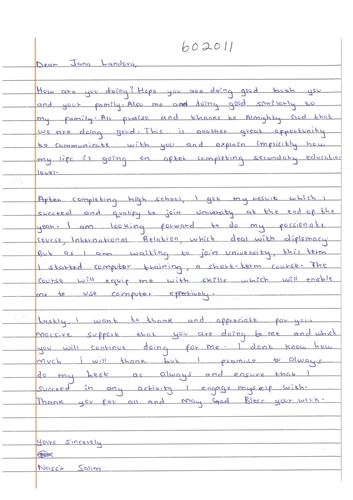 602011
Dear Jana Landova,
How are you doing? Hope you are doing good both you
and your family. Also me and doing good similarly to
my family. All praise and thanks to Almighty God that
we are doing good. This is another great opportunity
to communicate with you and explain implicitly how
my life is going on after completing secondary education
level.
After completing high school, I got my result which I
succeed and qualify to join university at the end of the
year. I am looking forward to do my passionate
course, International Relation, which deal with diplomacy
But as I am waiting to join university, this term
I started computer training, a short-term course. The
course will equip me with skills which will enable
me to use computer effectively.
Lastly, I want to thank and appreciate for your
massive support that you are doing to me and which
you will continue doing for me. I dont know how
much i will thank but I promise to always
do my best as always and ensure that I
succeed in any activity I engage myself with.
Thank you for all and may God Bless your work.
Yours Sincerely
Nassir Salim